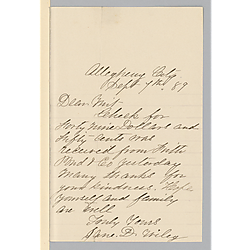 Allegheny City
Sept 7th. 89
Dear Mrs
Check for
forty nine Dollars and
fifty cents was
received from Smith
& Co yesterday
Many thanks for
your kindness. Hope
yourself and family
are well
Truly Yours
Jane. D.